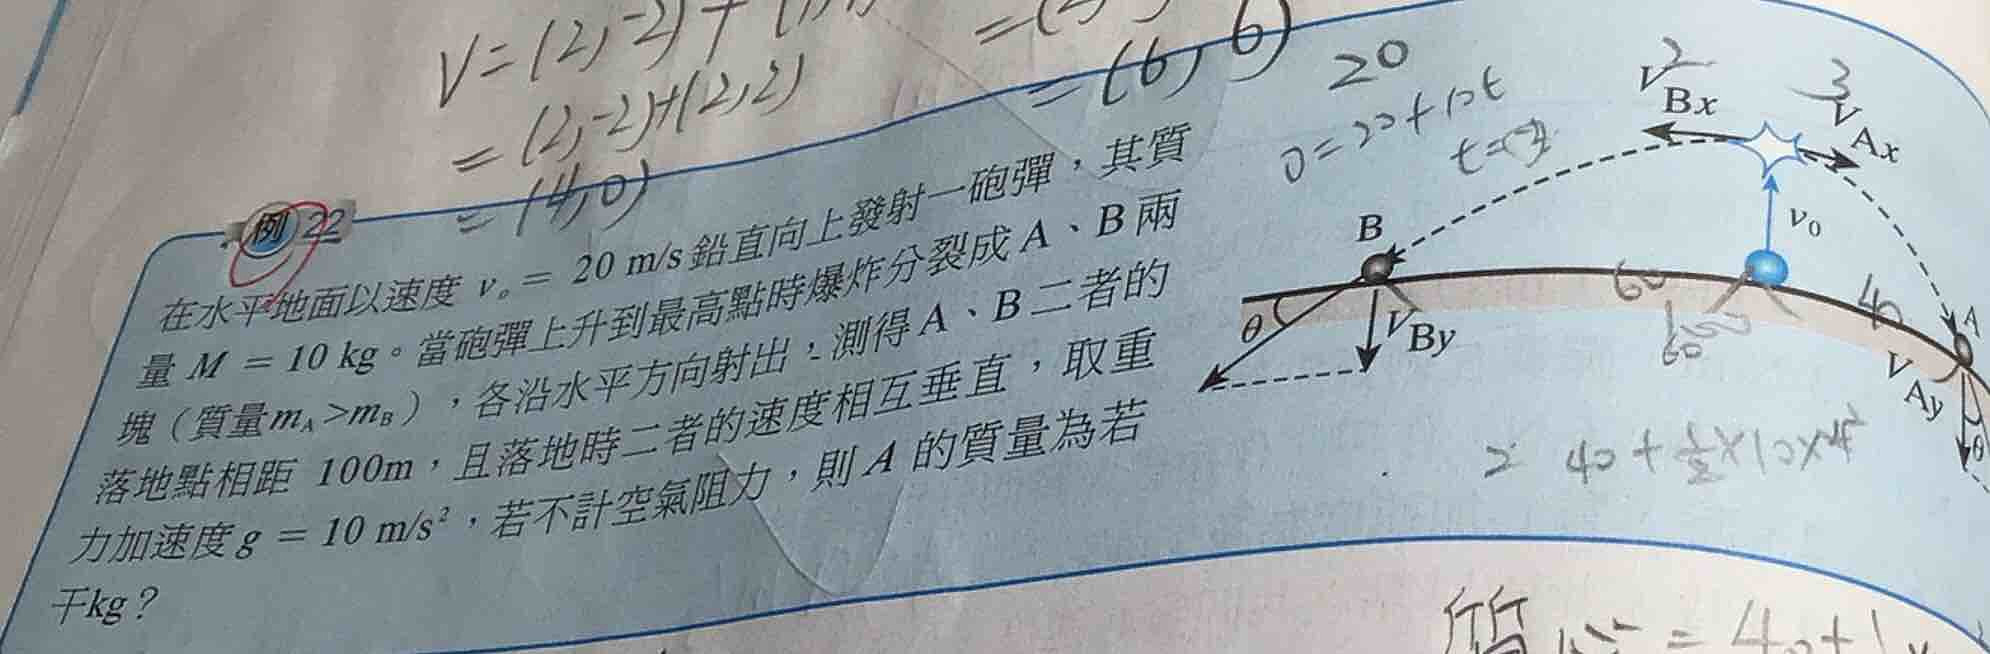 V=(2,-2)+
=(2,-2)+(2,2)
=(4,0)
=(6,6)
例 22
在水平地面以速度 v₀ = 20 m/s 鉛直向上發射一砲彈，其質
量 M = 10 kg。當砲彈上升到最高點時爆炸分裂成 A、B 兩
塊（質量 mA>mB），各沿水平方向射出，測得 A、B 二者的
落地點相距 100m，且落地時二者的速度相互垂直，取重
力加速度 g = 10 m/s²，若不計空氣阻力，則 A 的質量為若
干kg？
20
0=20+10t
2
VBx
3
VAx
v₀
B
60
40
A
θ
VBy
VAy
θ
40+½×10×
質心=40+